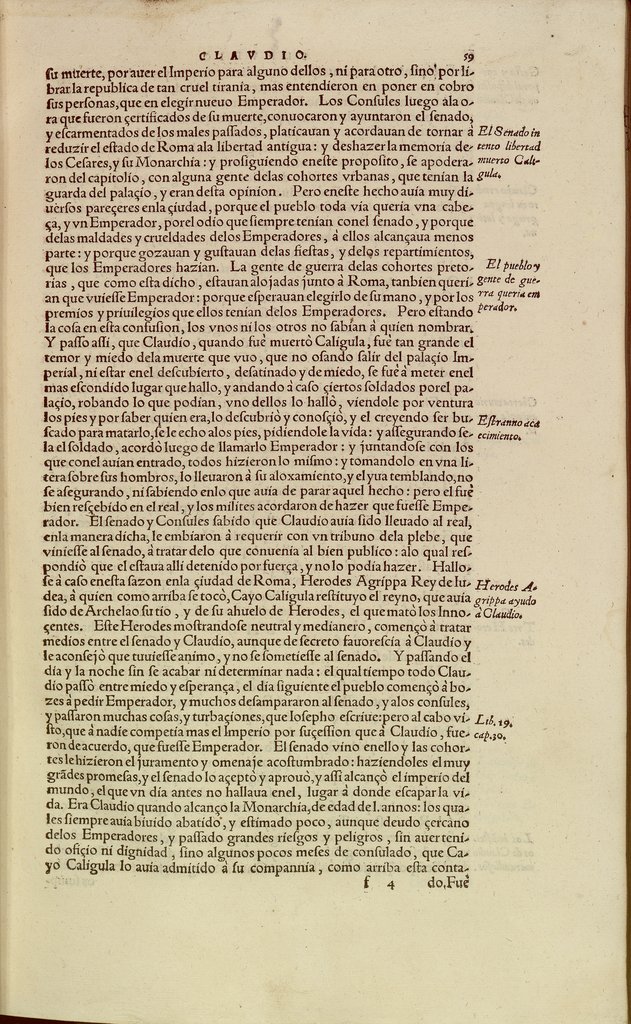 CLAVDIO. 59
su muerte, por auer el Imperio para alguno dellos, ni para otro, sino por li-
brar la republica de tan cruel tirania, mas entendieron en poner en cobro
sus personas, que en elegir nueuo Emperador. Los Consules luego ala o-
ra que fueron çertificados de su muerte, conuocaron y ayuntaron el senado,
y escarmentados de los males passados, platicauan y acordauan de tornar à
reduzir el estado de Roma ala libertad antigua: y deshazer la memoria de-
los Cesares, y su Monarchia: y prosiguiendo eneste proposito, se apodera-
ron del capitolio, con alguna gente delas cohortes vrbanas, que tenian la
guarda del palaçio, y eran desta opinion. Pero eneste hecho auia muy di-
uersos pareçeres enla çiudad, porque el pueblo toda via queria vna cabe-
ça, y vn Emperador, por el odio que siempre tenian conel senado, y porque
delas maldades y crueldades delos Emperadores, à ellos alcançaua menos
parte: y porque gozauan y gustauan delas fiestas, y delos repartimientos,
que los Emperadores hazian. La gente de guerra delas cohortes preto-
rias, que como esta dicho, estauan alojadas junto à Roma, tanbien queri-
an que vuiesse Emperador: porque esperauan elegirlo de su mano, y por los
premios y priuilegios que ellos tenian delos Emperadores. Pero estando
la cosa en esta confusion, los vnos ni los otros no sabian à quien nombrar.
Y passo assi, que Claudio, quando fuè muertò Caligula, fuè tan grande el
temor y miedo dela muerte que vuo, que no osando salir del palaçio Im-
perial, ni estar enel descubierto, desatinado y de miedo, se fuè à meter enel
mas escondido lugar que hallo, y andando à caso çiertos soldados porel pa-
laçio, robando lo que podian, vno dellos lo hallò, viendole por ventura
los pies y por saber quien era, lo descubriò y conosçiò, y el creyendo ser bu-
scado para matarlo, se le echo alos pies, pidiendole la vida: y assegurando se-
la el soldado, acordò luego de llamarlo Emperador: y juntandose con los
que conel auian entrado, todos hizieron lo mismo: y tomandolo en vna li-
tera sobre sus hombros, lo lleuaron à su aloxamiento, y el yua temblando, no
se asegurando, ni sabiendo enlo que auia de parar aquel hecho: pero el fuè
bien resçebido en el real, y los milites acordaron de hazer que fuesse Empe-
rador. El senado y Consules sabido que Claudio auia sido lleuado al real,
enla manera dicha, le embiaron à requerir con vn tribuno dela plebe, que
viniesse al senado, à tratar delo que conuenia al bien publico: alo qual res-
pondiò que el estaua alli detenido por fuerça, y no lo podia hazer. Hallo-
se à caso enesta sazon enla çiudad de Roma, Herodes Agrippa Rey de Iu-
dea, à quien como arriba se tocò, Cayo Caligula restituyo el reyno, que auia
sido de Archelao su tio, y de su ahuelo de Herodes, el que matò los Inno-
çentes. Este Herodes mostrandose neutral y medianero, començò à tratar
medios entre el senado y Claudio, aunque de secreto fauorescia à Claudio y
le aconsejò que tuuiesse animo, y no se sometiesse al senado. Y passando el
dia y la noche sin se acabar ni determinar nada: el qual tiempo todo Clau-
dio passò entre miedo y esperança, el dia siguiente el pueblo començò à bo-
zes à pedir Emperador, y muchos desampararon al senado, y alos consules,
y passaron muchas cosas, y turbaçiones, que Iosepho escriue: pero al cabo vi-
sto, que à nadie competia mas el Imperio por suçession que à Claudio, fue-
ron de acuerdo, que fuesse Emperador. El senado vino enello y las cohor-
tes le hizieron el juramento y omenaje acostumbrado: haziendoles el muy
grãdes promesas, y el senado lo açeptò y aprouò, y assi alcançò el imperio del
mundo, el que vn dia antes no hallaua enel, lugar à donde escapar la vi-
da. Era Claudio quando alcanço la Monarchia, de edad de l. annos: los qua-
les siempre auia biuido abatido, y estimado poco, aunque deudo çercano
delos Emperadores, y passado grandes riesgos y peligros, sin auer teni-
do ofiçio ni dignidad, sino algunos pocos meses de consulado, que Ca-
yo Caligula lo auia admitido à su compannia, como arriba esta conta-
f 4 do. Fuè
El Senado in
tento libertad
muerto Cali-
gula.
El pueblo y
gente de gue-
rra queria em
perador.
Estranno aca
ecimiento.
Herodes A-
grippa ayudo
à Claudio.
Lib. 19.
cap. 30.